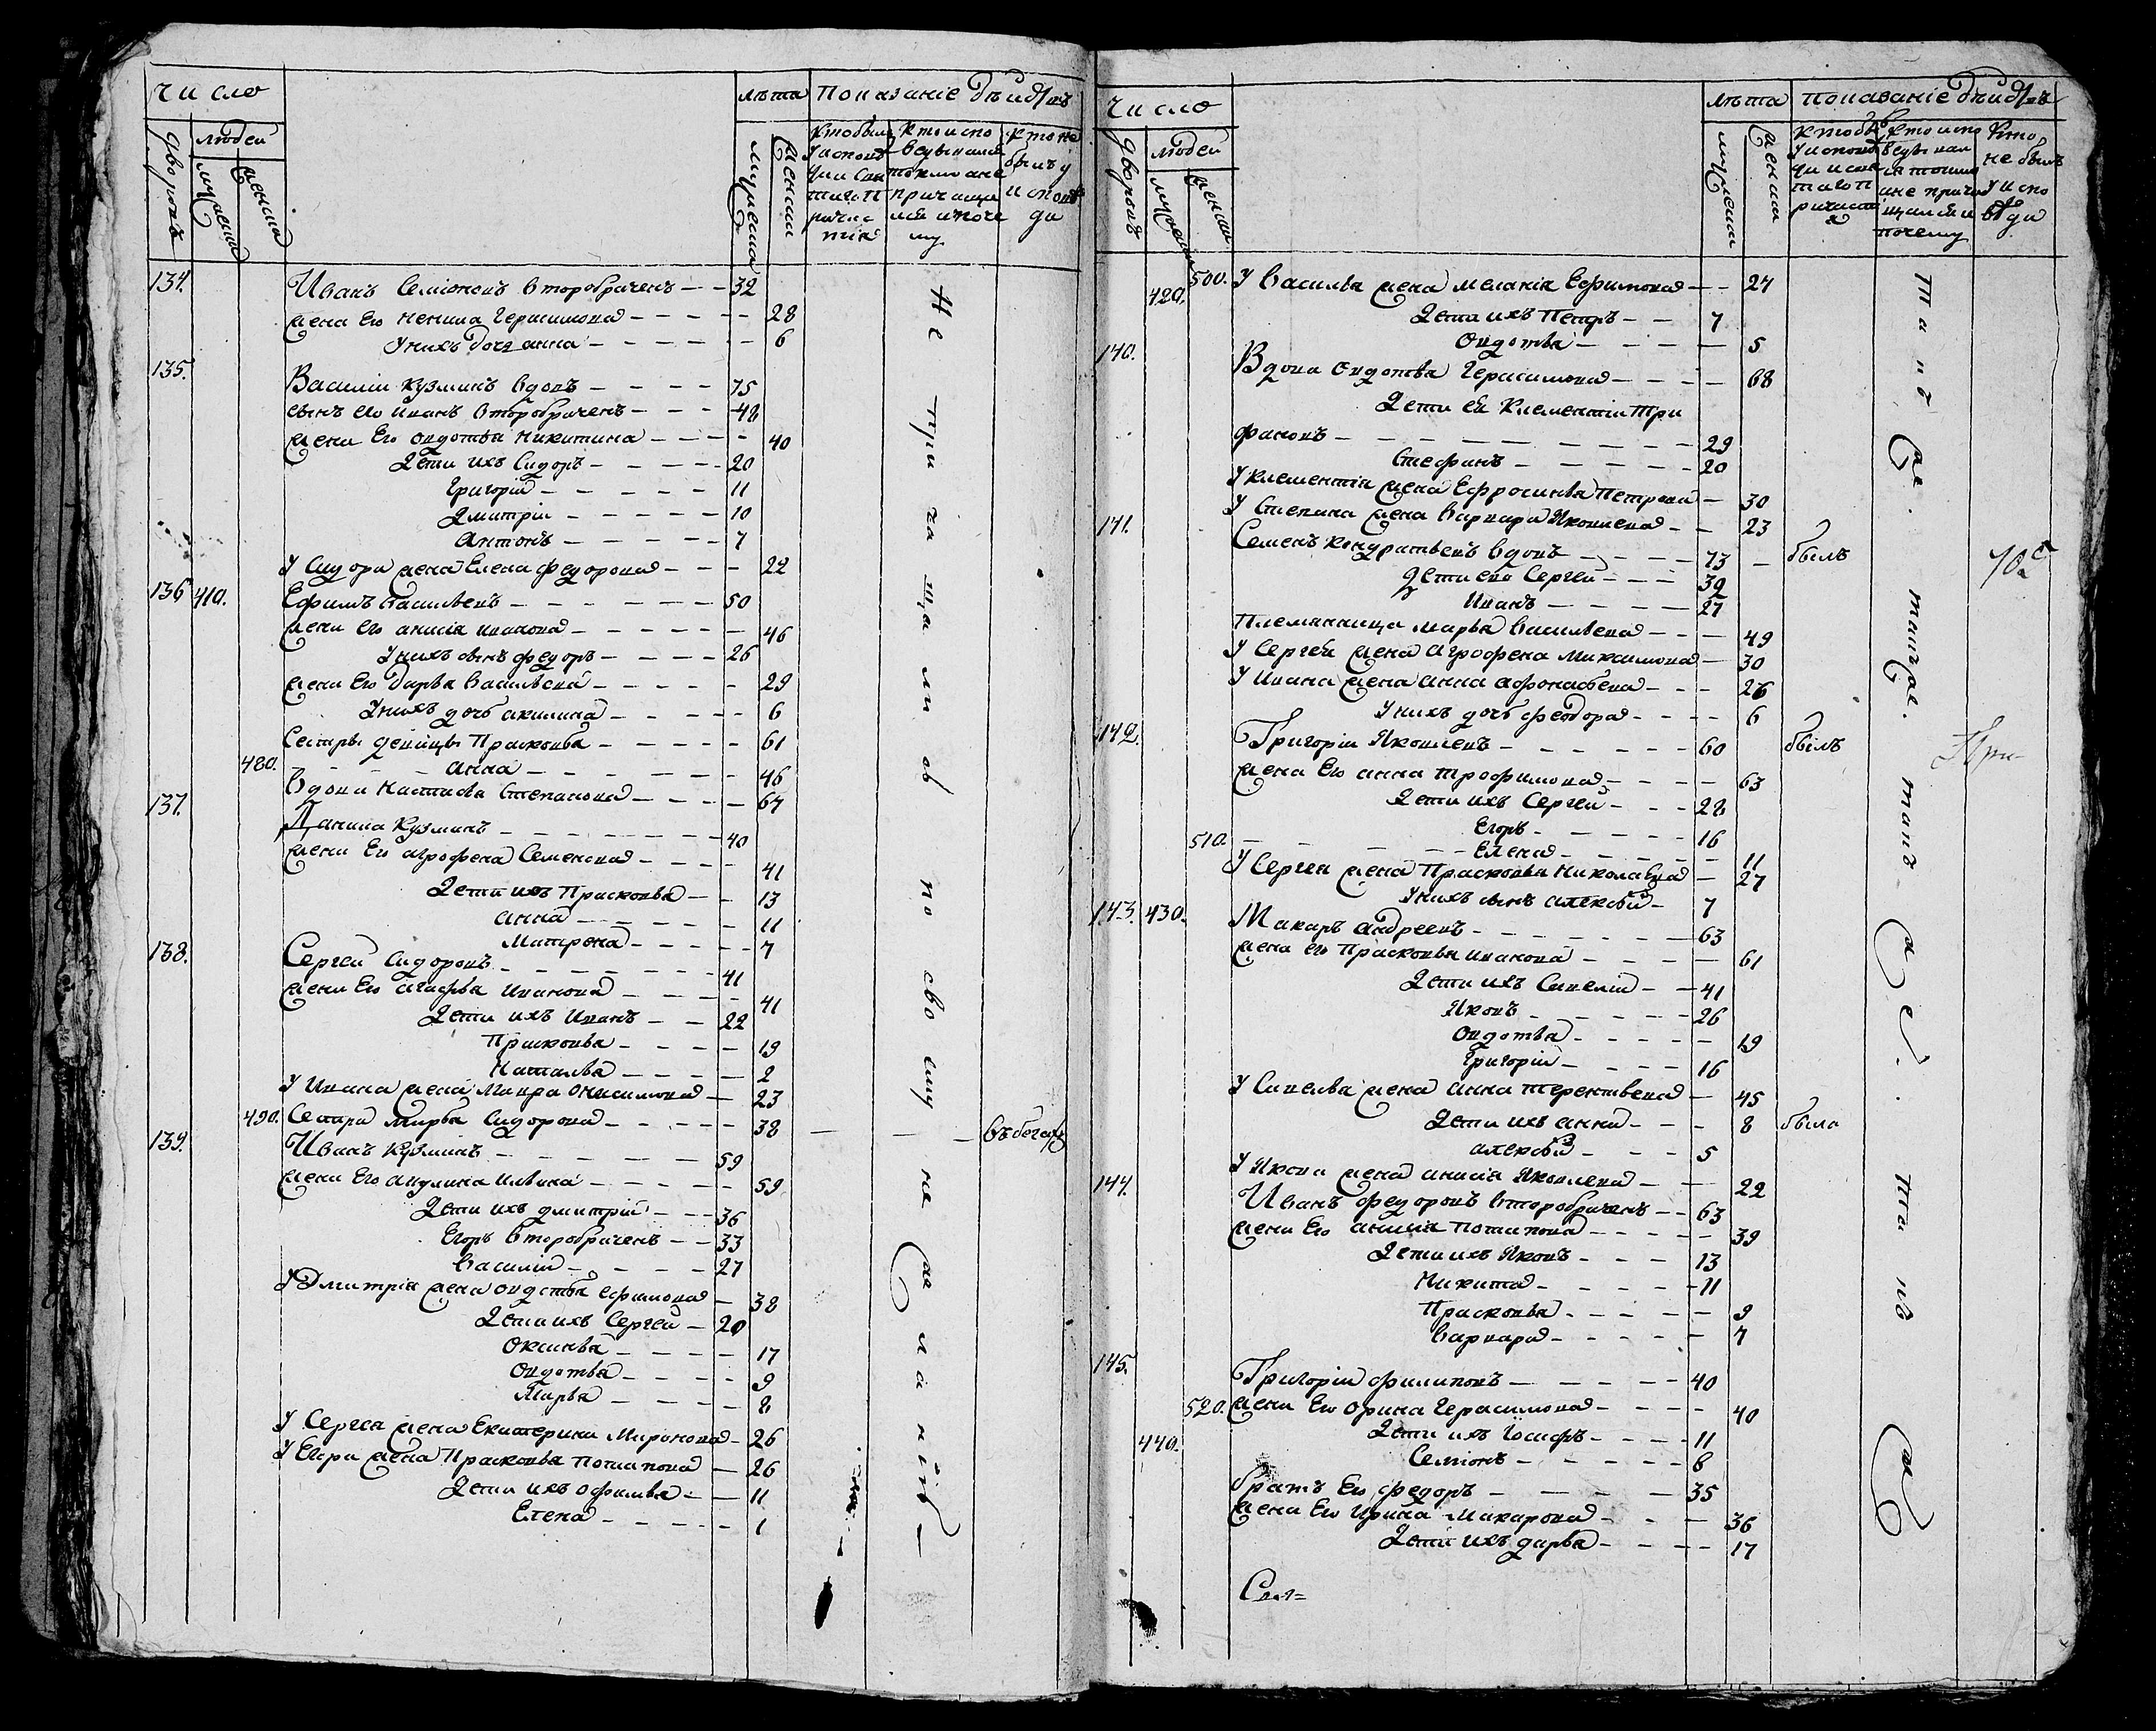 число
людей
дворовъ
мужеска
женска
лѣта
мужеска
женска
показаніе дѣйствъ
134.
Иванъ Семіоновъ второбраченъ 32
жена Его Герасимова 28
У нихъ дочь анна 6
135.
Василіи Кузминъ вдовъ 75
сынъ его иванъ второбраченъ 48
жена Его овдотья никитина 40
Дети ихъ Сидоръ 20
Григорій 11
Дмитріи 10
Антонъ 7
У Сидора жена Елена федорова 22
136 410.
Ефимъ васильевъ 50
жена его анисія иванова 46
У нихъ сынъ федоръ 26
жена Его дарья васильева 29
У нихъ дочь акилина 6
Сестры девицы Прасковья 61
480.
анна 46
вдова настасья Степанова 67
137.
Данила Кузминъ 40
жена Его агрофена Семенова 41
Дети ихъ Прасковья 13
анна 11
Матрона 7
138.
Сергеи Сидоровъ 41
жена Его агафья Иванова 41
Дети ихъ Иванъ 22
Прасковья 19
Наталья 2
У Ивана жена Мавра Онисимова 23
490. Сестра марья Сидорова 38 въ бегахъ
139.
Иванъ Кузминъ 59
жена Его акулина ильина 59
Дети ихъ дмитрій 36
Егоръ второбраченъ 33
Василій 27
У Дмитрія жена овдотья ефимова 38
Дети ихъ Сергеи 20
Оксинья 17
Овдотья 9
Марья 8
У Сергея жена Екатерина Миронова 26
У Егора жена Прасковья потапова 26
Дети ихъ офимья 11
Елена 1
Не причащались по своему нежеланію
число
людей
дворовъ
мужеска
женска
лѣта
мужеска
женска
показаніе дѣйствъ
кто не былъ у исповѣди
500. У Василья жена меланія Ефимова 27
420.
Дети ихъ Петръ 7
Овдотья 5
140.
Вдова овдотья Герасимова 68
Дети её Клементіи Три
фановъ 29
Стефанъ 20
У клементія жена Ефросинья Петрова 30
У Степана жена варвара Яковлева 23
141.
Семенъ кондратьевъ вдовъ 73 былъ
Дети его Сергеи 39
Иванъ 27
Племянница марья васильева 49
У Сергея жена Агрофена Максимова 30
У Ивана жена анна афонасьева 26
У нихъ дочь феодора 6
142.
Григоріи Яковлевъ 60 былъ
жена Его анна трофимова 63
Дети ихъ Сергеи 28
Егоръ 16
510.
Елена 11
У Сергея жена Прасковья Николаева 27
У нихъ сынъ алексѣй 7
143. 430.
Макаръ андреевъ 63
жена его Прасковья иванова 61
Дети ихъ Савелій 41
Яковъ 26
Овдотья 19
Григорій 16
У Савелья жена анна терентьева 45
Дети ихъ анна 8 была
алексѣй 5
У Якова жена анисія Яковлева 22
144.
Иванъ федоровъ второбраченъ 63
жена Его анисія потапова 39
Дети ихъ Яковъ 13
Никита 11
Прасковья 9
варвара 7
145.
Григоріи филиповъ 40
520. жена Его орина Герасимова 40
440.
Дети ихъ Іосифъ 11
Семіонъ 8
братъ Его федоръ 35
жена Его Ирина Макарова 36
Дети ихъ дарья 17
такъ же